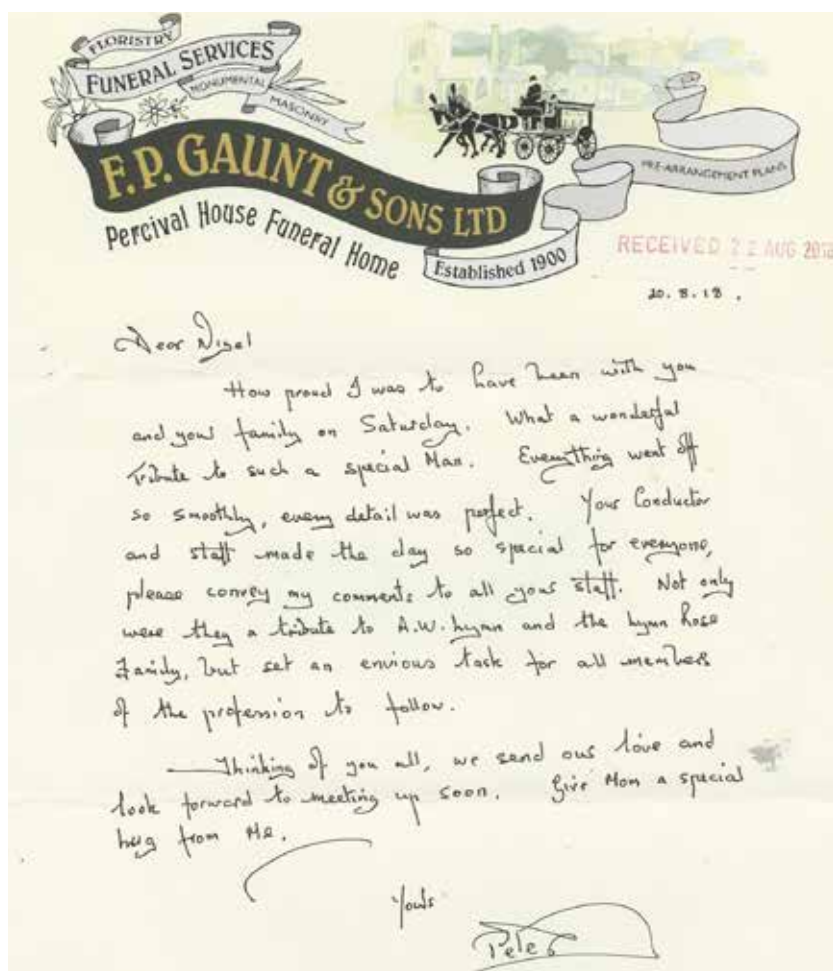 FLORISTRY
FUNERAL SERVICES
MONUMENTAL
MASONRY
F.P. GAUNT & SONS LTD
Percival House Funeral Home
Established 1900
PRE-ARRANGEMENT PLANS
RECEIVED 22 AUG 2018
20.8.18.
Dear Nigel
How proud I was to have been with you
and your family on Saturday. What a wonderful
Tribute to such a special Man. Everything went off
so smoothly, every detail was perfect. Your Conductor
and staff made the day so special for everyone,
please convey my comments to all your staff. Not only
were they a tribute to A.W. Lymn and the Lymn Rose
Family, but set an envious task for all members
of the profession to follow.
Thinking of you all, we send our love and
look forward to meeting up soon. Give Mom a special
hug from Me.
Yours
Peter